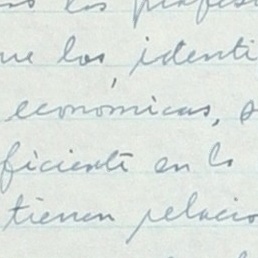 los profes
ue los identi
económicas, s
ficiente en lo
tienen relacio